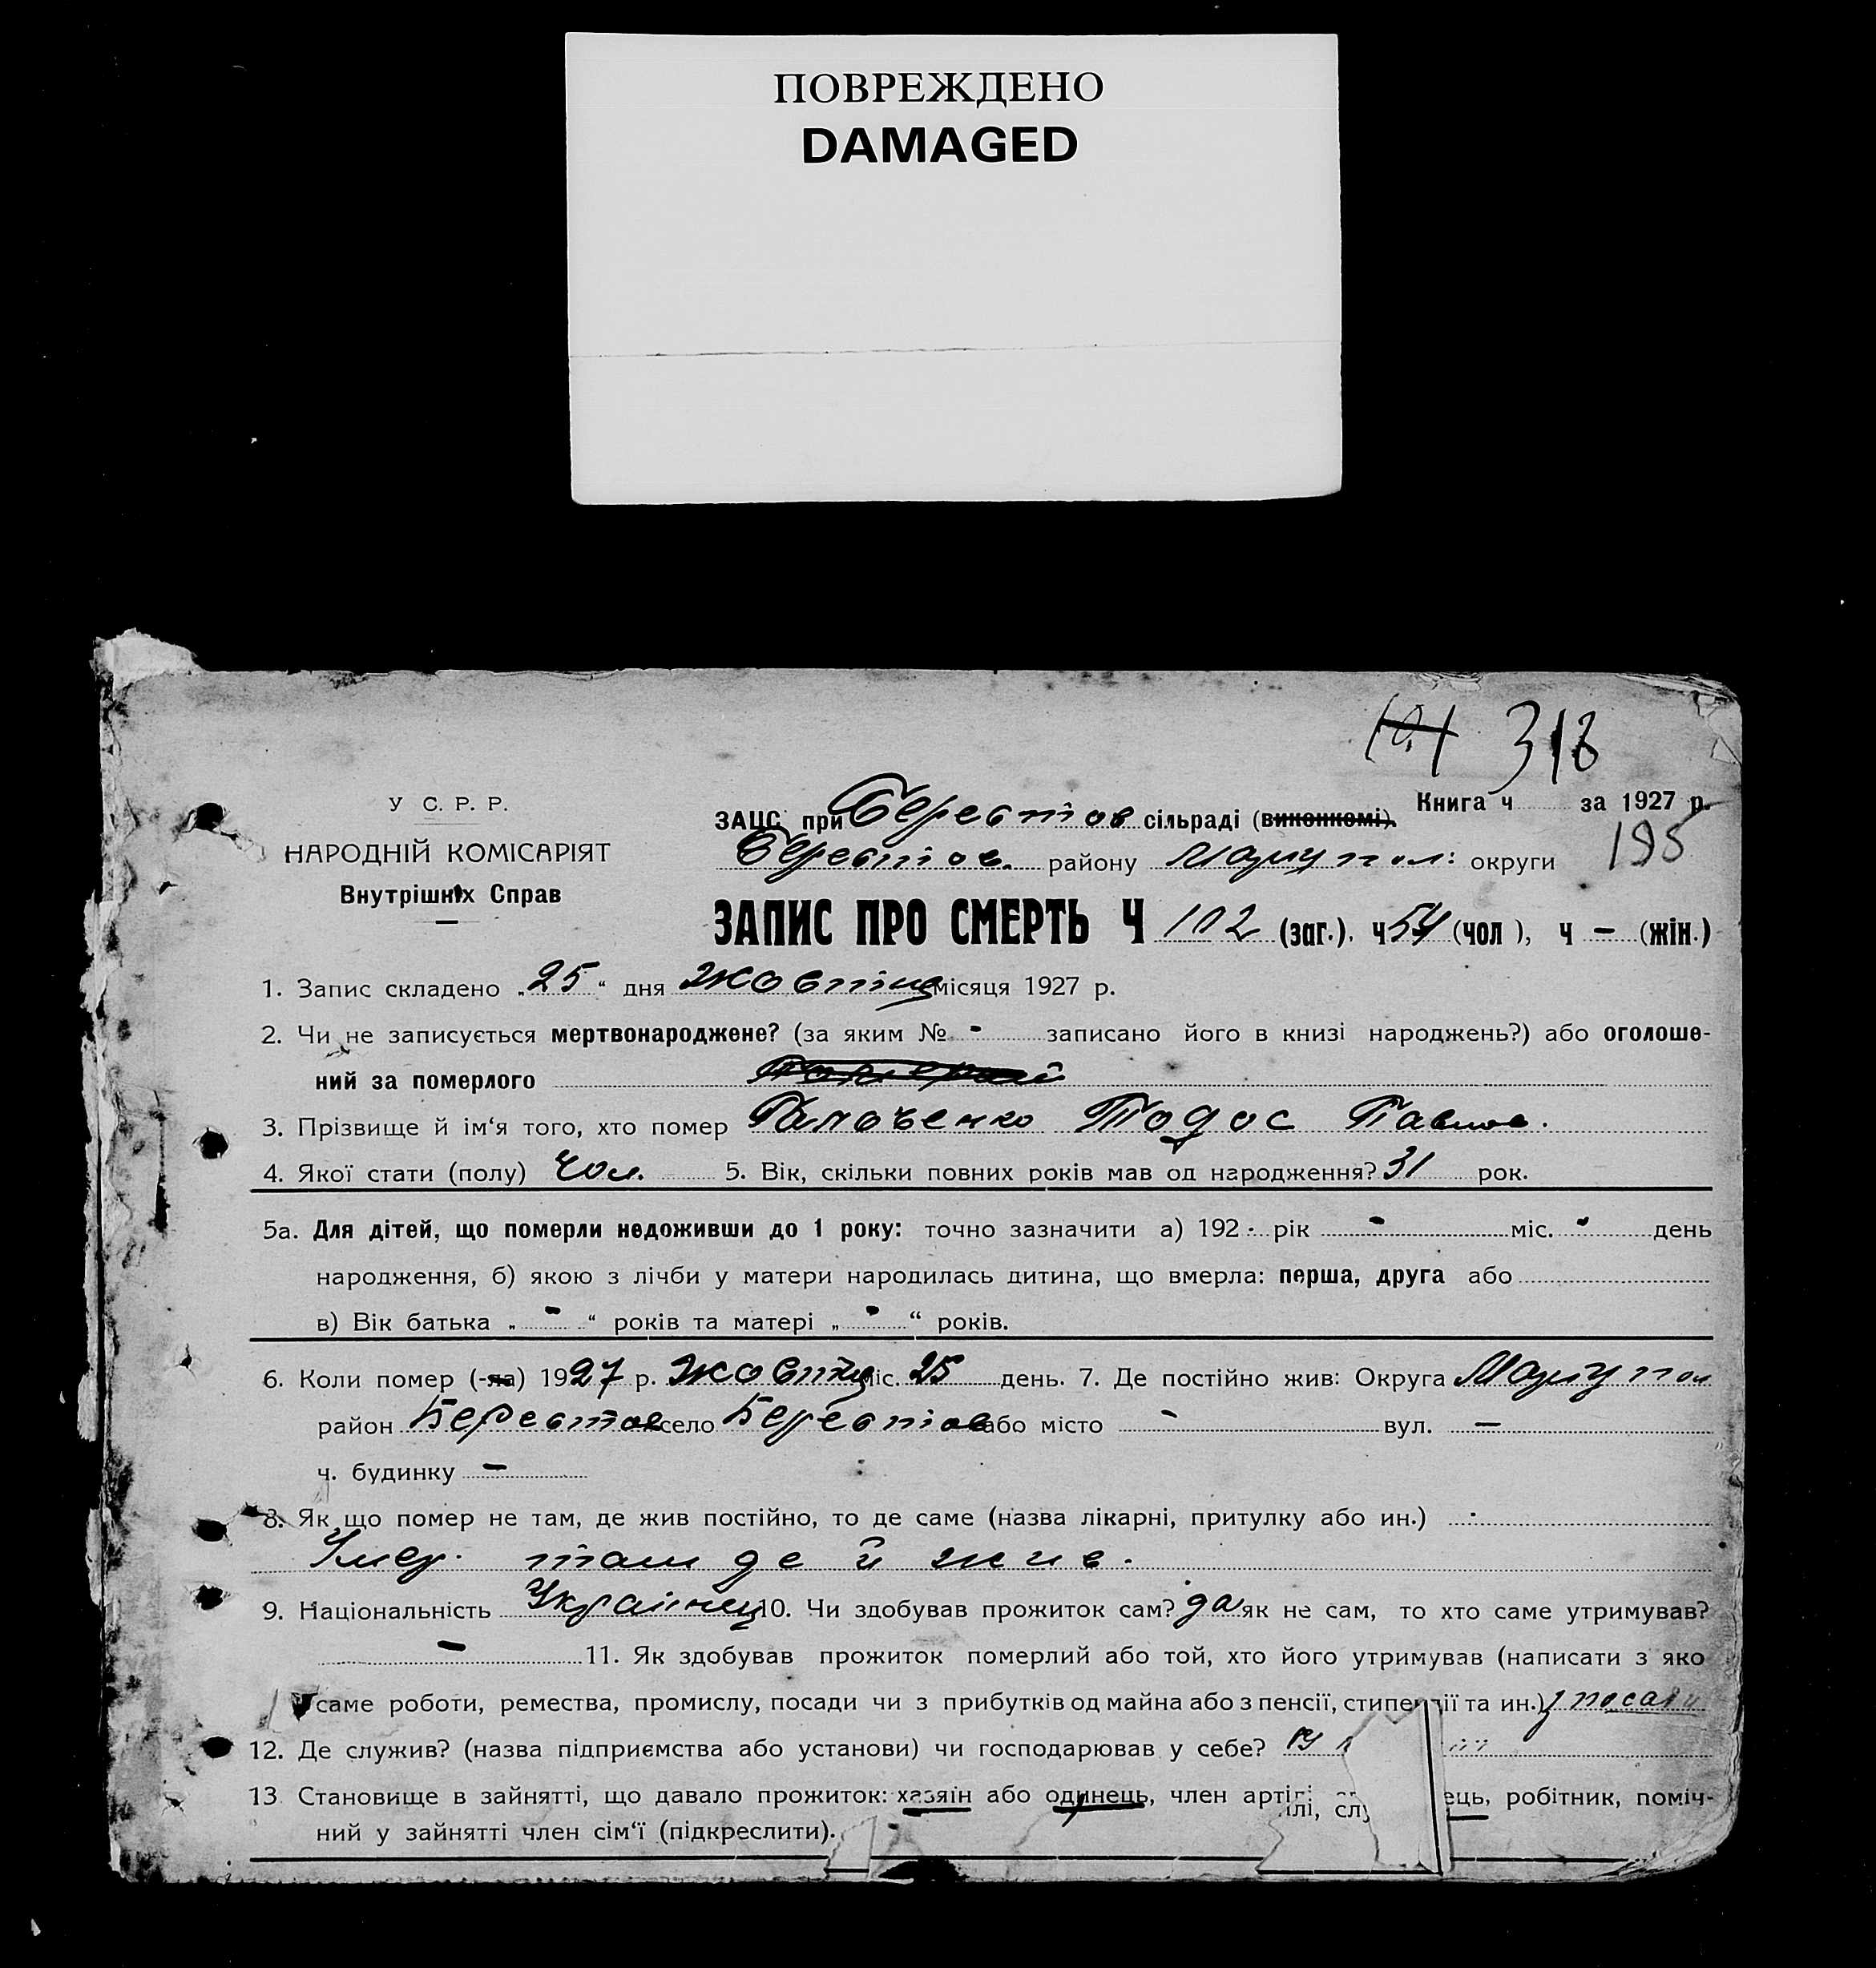 ПОВРЕЖДЕНО
DAMAGED
318
У С. Р. Р.
НАРОДНІЙ КОМІСАРІЯТ
Внутрішніх Справ
Книга ч за 1927 р.
195
ЗАЦС при Берестов сільраді (виконкомі).
Берестов. району Маріупол: округи
ЗАПИС ПРО СМЕРТЬ Ч 102 (заг.), ч 54 (чол), ч – (жін.)
1. Запис складено „25“ дня Жовтня місяця 1927 р.
2. Чи не записується мертвонароджене? (за яким № - записано його в книзі народжень?) або оголоше-
ний за померлого
3. Прізвище й ім‘я того, хто помер Тодос Павлов.
4. Якої стати (полу) Чол. 5. Вік, скільки повних років мав од народження? 31 рок.
5а. Для дітей, що померли недоживши до 1 року: точно зазначити а) 192 - рік - міс. - день
народження, б) якою з лічби у матери народилась дитина, що вмерла: перша, друга або
в) Вік батька „ - “ років та матері „ - “ років.
6. Коли помер (-ла) 1927 р. Жовтня міс. 25 день. 7. Де постійно жив: Округа Маріупол
район Берестов село Берестов або місто - вул. –
ч. будинку –
8. Як що помер не там, де жив постійно, то де саме (назва лікарні, притулку або ин.)
Умер. там де й жив.
9. Національність Українец 10. Чи здобував прожиток сам? да як не сам, то хто саме утримував?
– 11. Як здобував прожиток померлий або той, хто його утримував (написати з яко
саме роботи, ремества, промислу, посади чи з прибутків од майна або з пенсії, стипендії та ин.) з посади
12. Де служив? (назва підприємства або установи) чи господарював у себе?
13 Становище в зайнятті, що давало прожиток: хазяїн або одинець, член артілі, ець, робітник, поміч-
ний у зайнятті член сім‘ї (підкреслити).